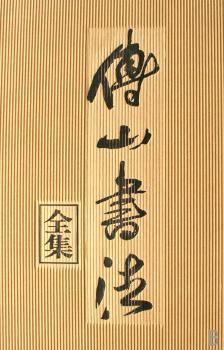 傅山書法
全集